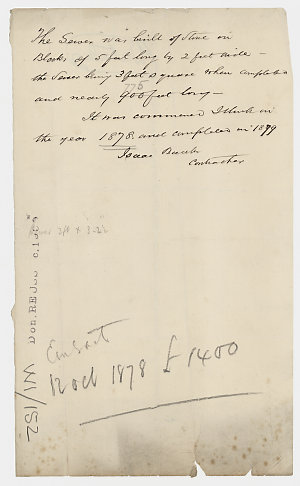 The Sewer was built of Stone in
Blocks of 5 feet long by 2 feet wide -
the Sewer being 3 feet square when completed
775
and nearly 900 feet long -
It was commenced I think in
the year 1878 and completed in 1879
Isaac
Contractor
12 Oct 1878 £1400
W1/152